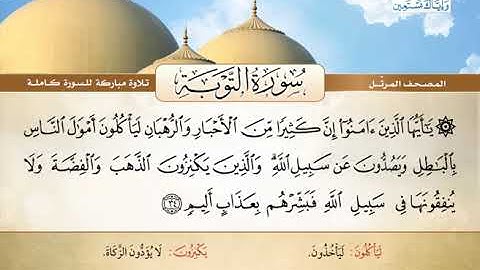 وَإِيَّاكَ نَسْتَعِينُ
المصحف المرتّل
سُورَةُ التَّوْبَةِ
تلاوة مباركة للسورة كاملة
۞ يَٰٓأَيُّهَا ٱلَّذِينَ ءَامَنُوٓا۟ إِنَّ كَثِيرًا مِّنَ ٱلْأَحْبَارِ وَٱلرُّهْبَانِ لَيَأْكُلُونَ أَمْوَٰلَ ٱلنَّاسِ
بِٱلْبَٰطِلِ وَيَصُدُّونَ عَن سَبِيلِ ٱللَّهِ ۗ وَٱلَّذِينَ يَكْنِزُونَ ٱلذَّهَبَ وَٱلْفِضَّةَ وَلَا
يُنفِقُونَهَا فِى سَبِيلِ ٱللَّهِ فَبَشِّرْهُم بِعَذَابٍ أَلِيمٍ ٣٤
لَيَأْكُلُونَ: لَيَأْخُذُونَ.
يَكْنِزُونَ: لَا يُؤَدُّونَ الزَّكَاةَ.